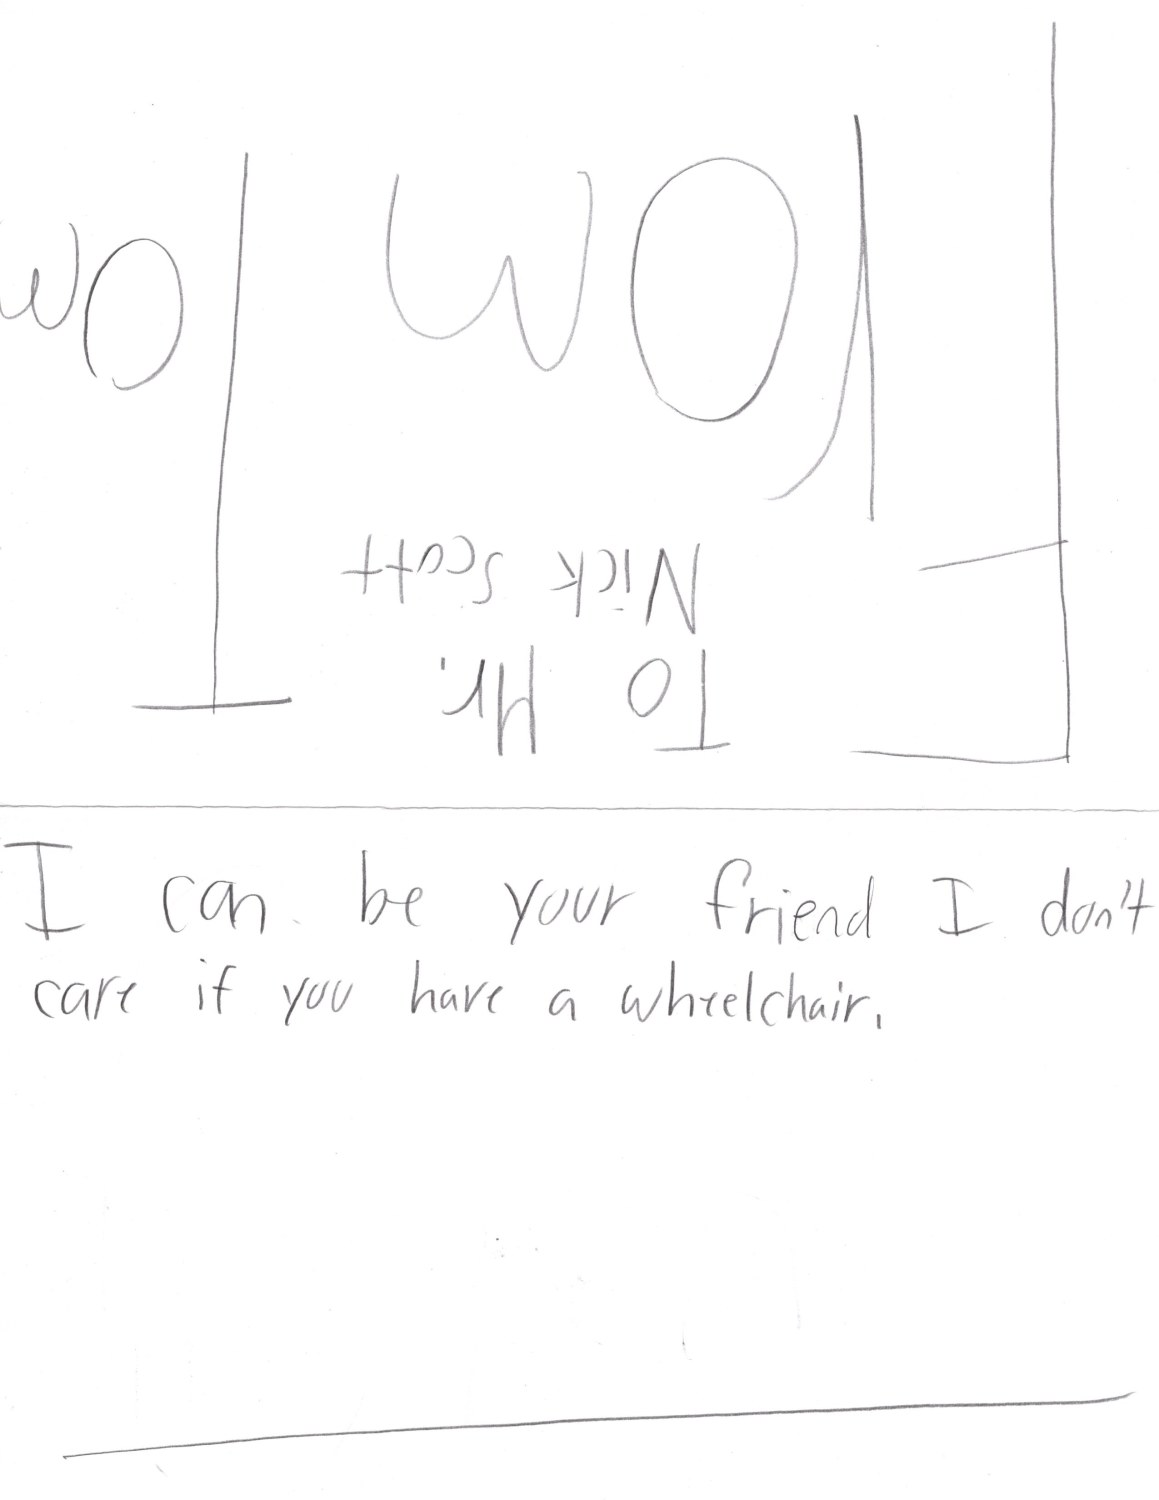 To Mr.
Nick Scott
From Tom
I can be your friend I don't
care if you have a wheelchair.